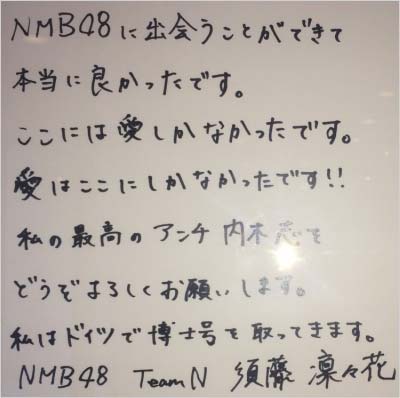 NMB48に出会うことができて
本当に良かったです。
ここには愛しかなかったです。
愛はここにしかなかったです!!
私の最高のアンチ 内木志を
どうぞよろしくお願いします。
私はドイツで博士号を取ってきます。
NMB48 TeamN 須藤 凜々花